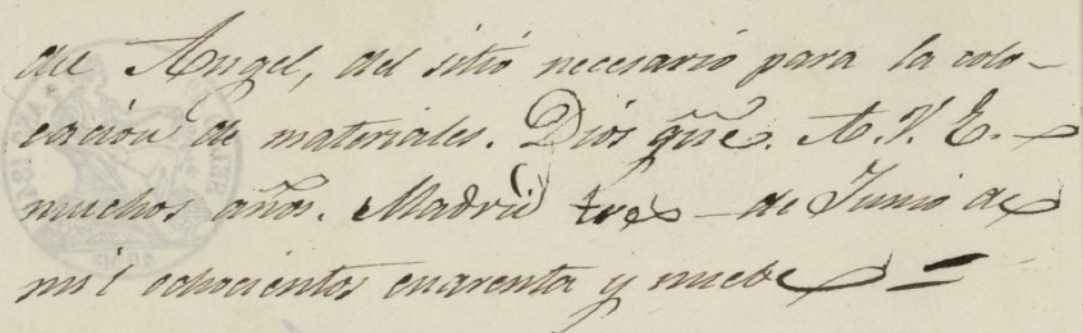 del Angel, del sitio necesario para la colo-
cación de materiales. Dios gũe. A. V. E.
muchos años. Madrid tres de Junio de
mil ochocientos cuarenta y nueve